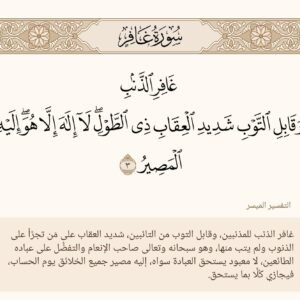 سُورَةُ غَافِرٍ
غَافِرِ ٱلذَّنۢبِ
وَقَابِلِ ٱلتَّوۡبِ شَدِيدِ ٱلۡعِقَابِ ذِي ٱلطَّوۡلِۖ لَآ إِلَٰهَ إِلَّا هُوَۖ إِلَيۡهِ
ٱلۡمَصِيرُ ٣
التفسير الميسر
غافر الذنب للمذنبين، وقابل التوب من التائبين، شديد العقاب على مَن تجرَّأ على
الذنوب ولم يتب منها، وهو سبحانه وتعالى صاحب الإنعام والتفضُّل على عباده
الطائعين، لا معبود يستحق العبادة سواه، إليه مصير جميع الخلائق يوم الحساب،
فيجازي كلًّا بما يستحق.